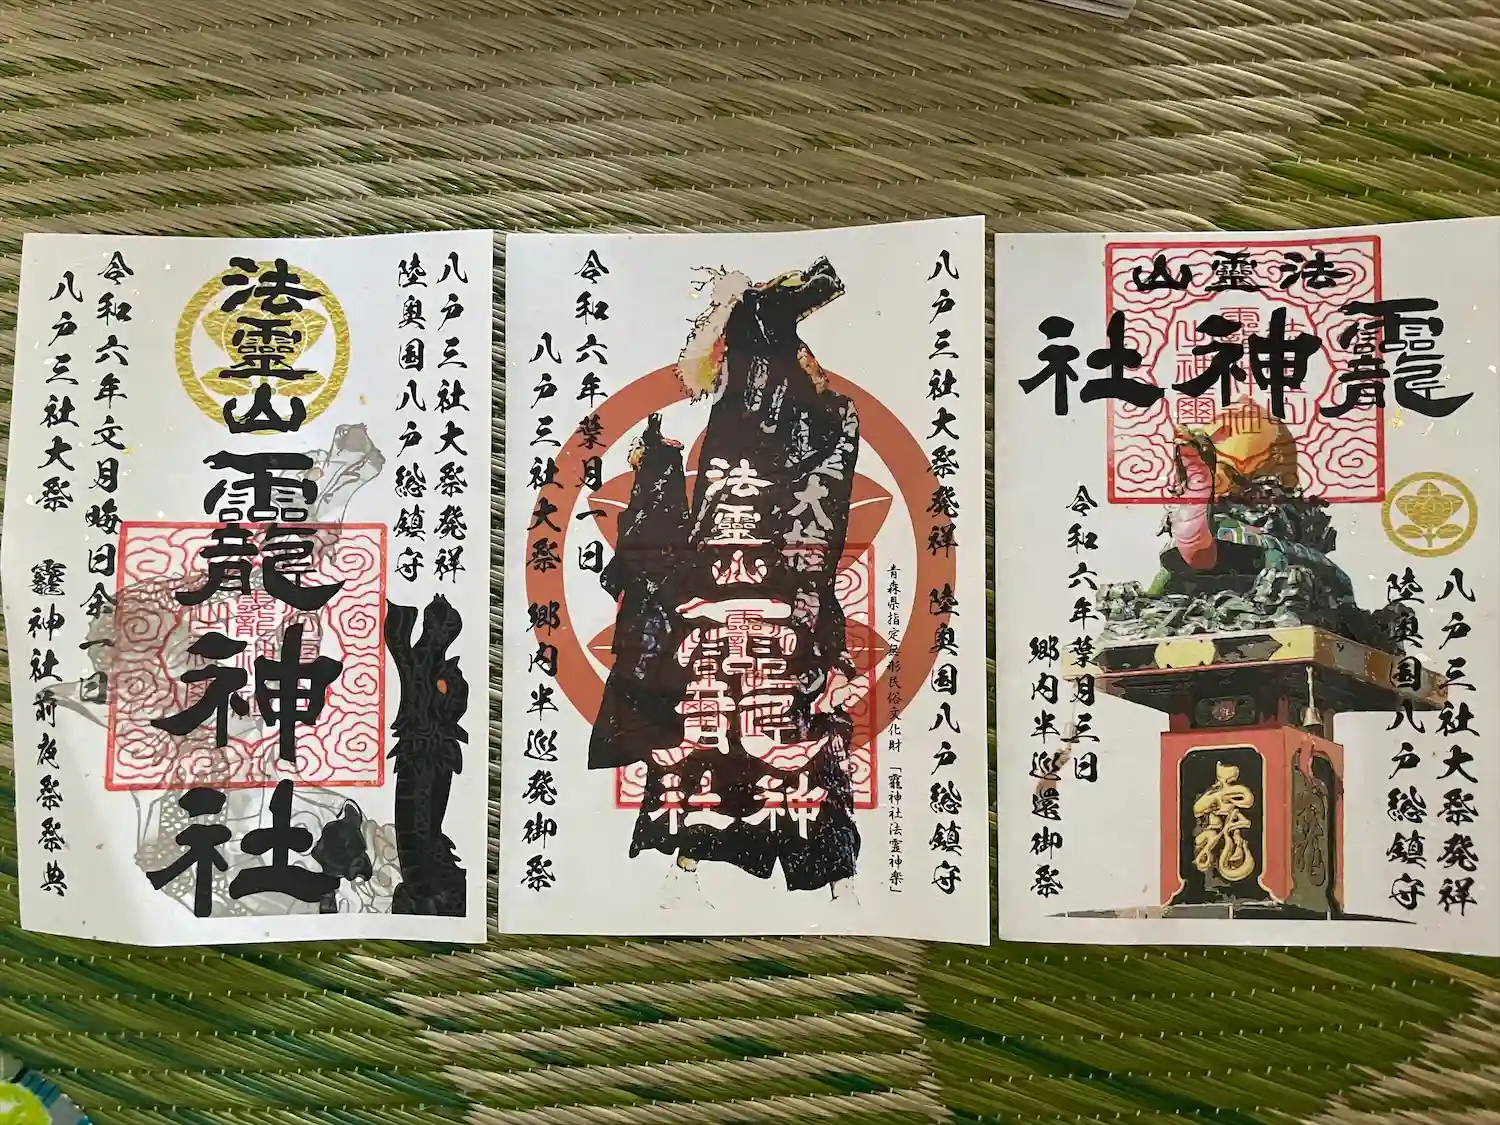 八戸三社大祭発祥
陸奥国八戸総鎮守
法靈山
龗神社
令和六年文月晦日余一日
八戸三社大祭 龗神社前夜祭祭典
八戸三社大祭発祥 陸奥国八戸総鎮守
青森県指定無形民俗文化財「龗神社法霊神楽」
法靈山
龗神社
令和六年葉月一日
八戸三社大祭 郷内半巡発御祭
法靈山
龗神社
八戸三社大祭発祥
陸奥国八戸総鎮守
令和六年葉月三日
郷内半巡還御祭